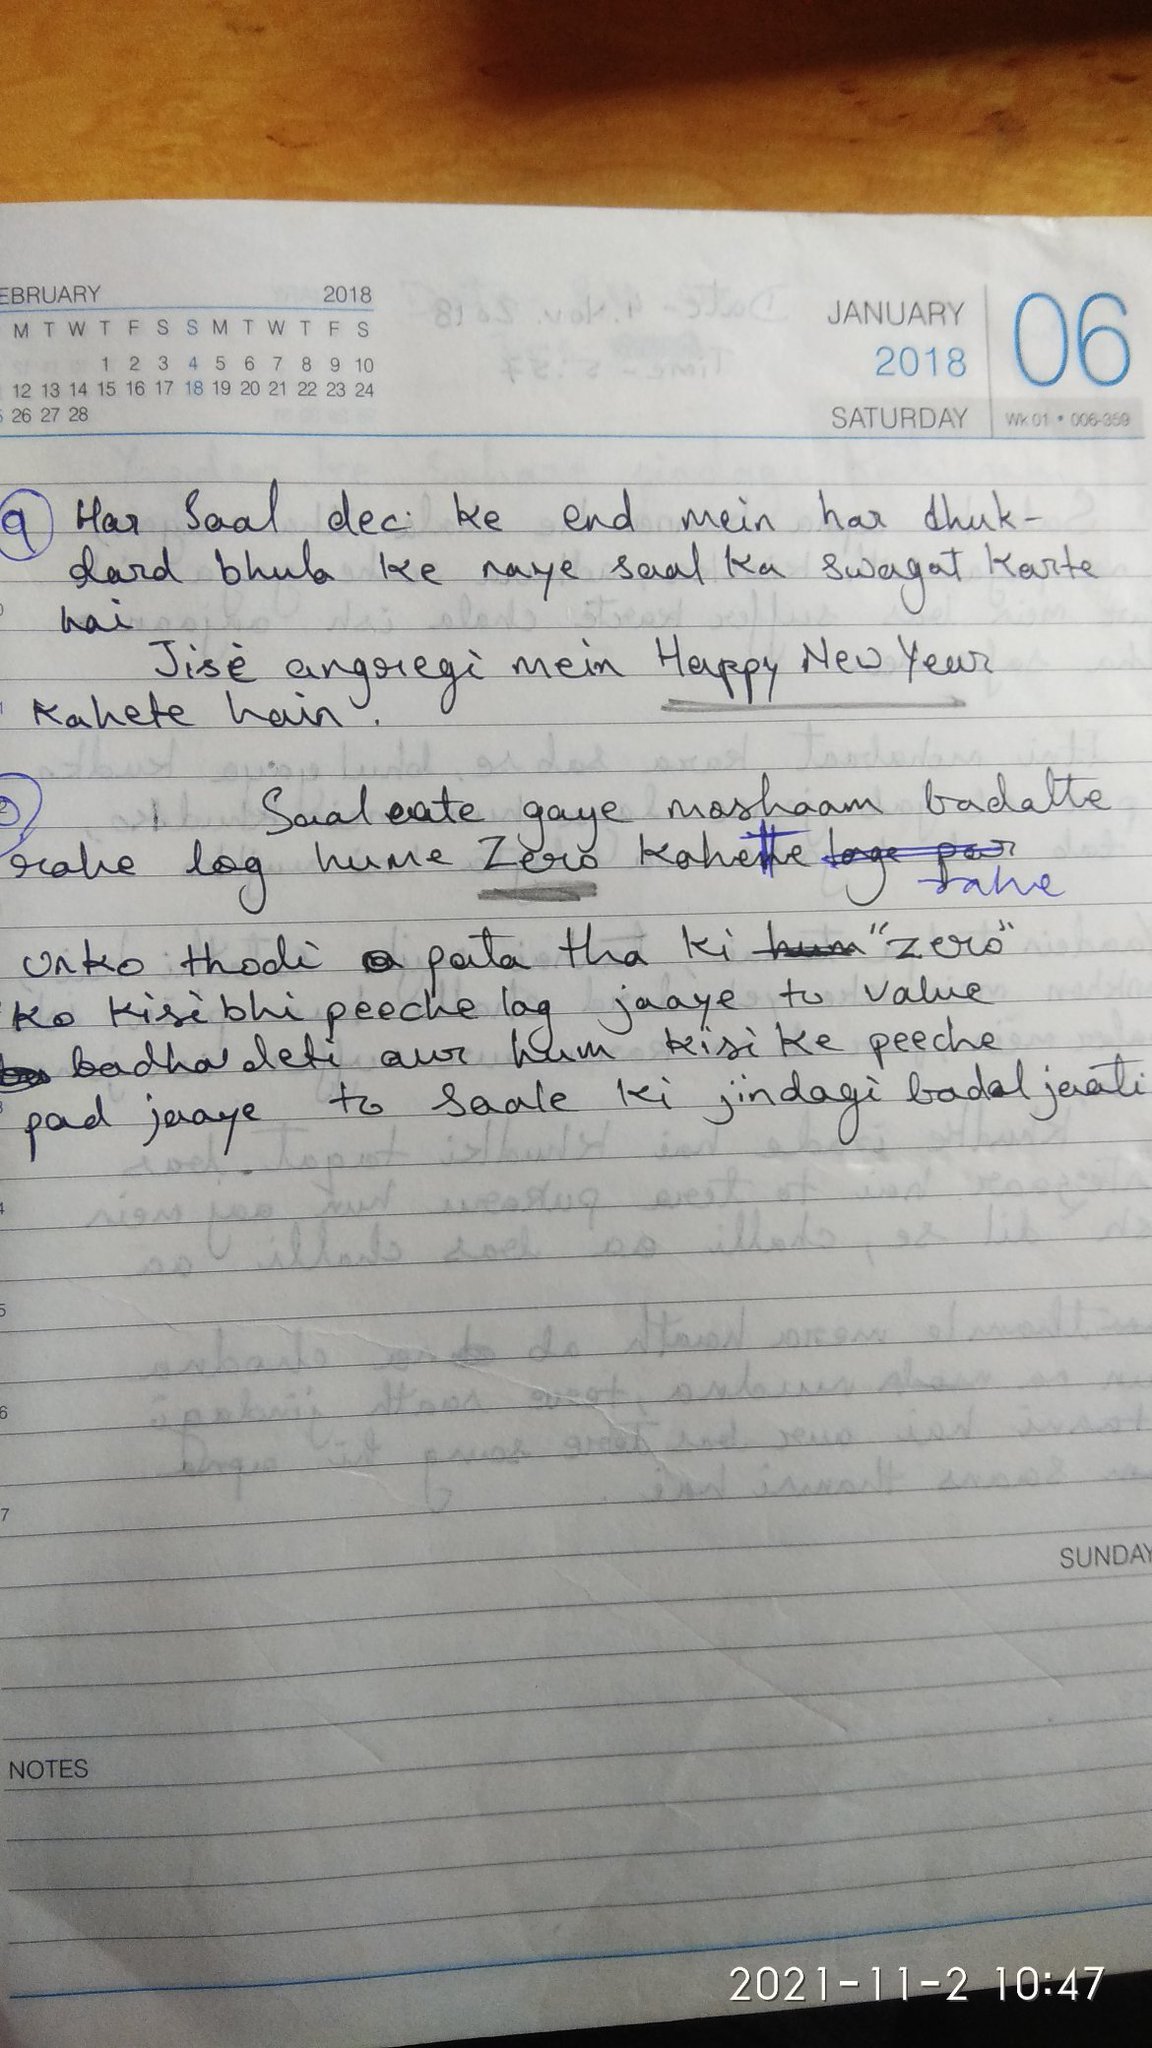 EBRUARY 2018
M T W T F S S M T W T F S
1 2 3 4 5 6 7 8 9 10
12 13 14 15 16 17 18 19 20 21 22 23 24
26 27 28
JANUARY
2018
SATURDAY
06
Wk 01 • 006-359
9 Har Saal dec. ke end mein har dhuk-
dard bhula ke naye saal ka swagat karte
hai
Jise angregi mein Happy New Year
Kahete hain.
Saal eate gaye moshaam badalte
rahe log hume Zero Kahette lage par
rahe
Unko thodi pata tha ki hum "zero"
Ko kisi bhi peeche lag jaaye to value
badha deti aur hum kisi ke peeche
pad jaaye to saale ki jindagi badal jaati
4
5
6
7
SUNDAY
NOTES
2021-11-2 10:47